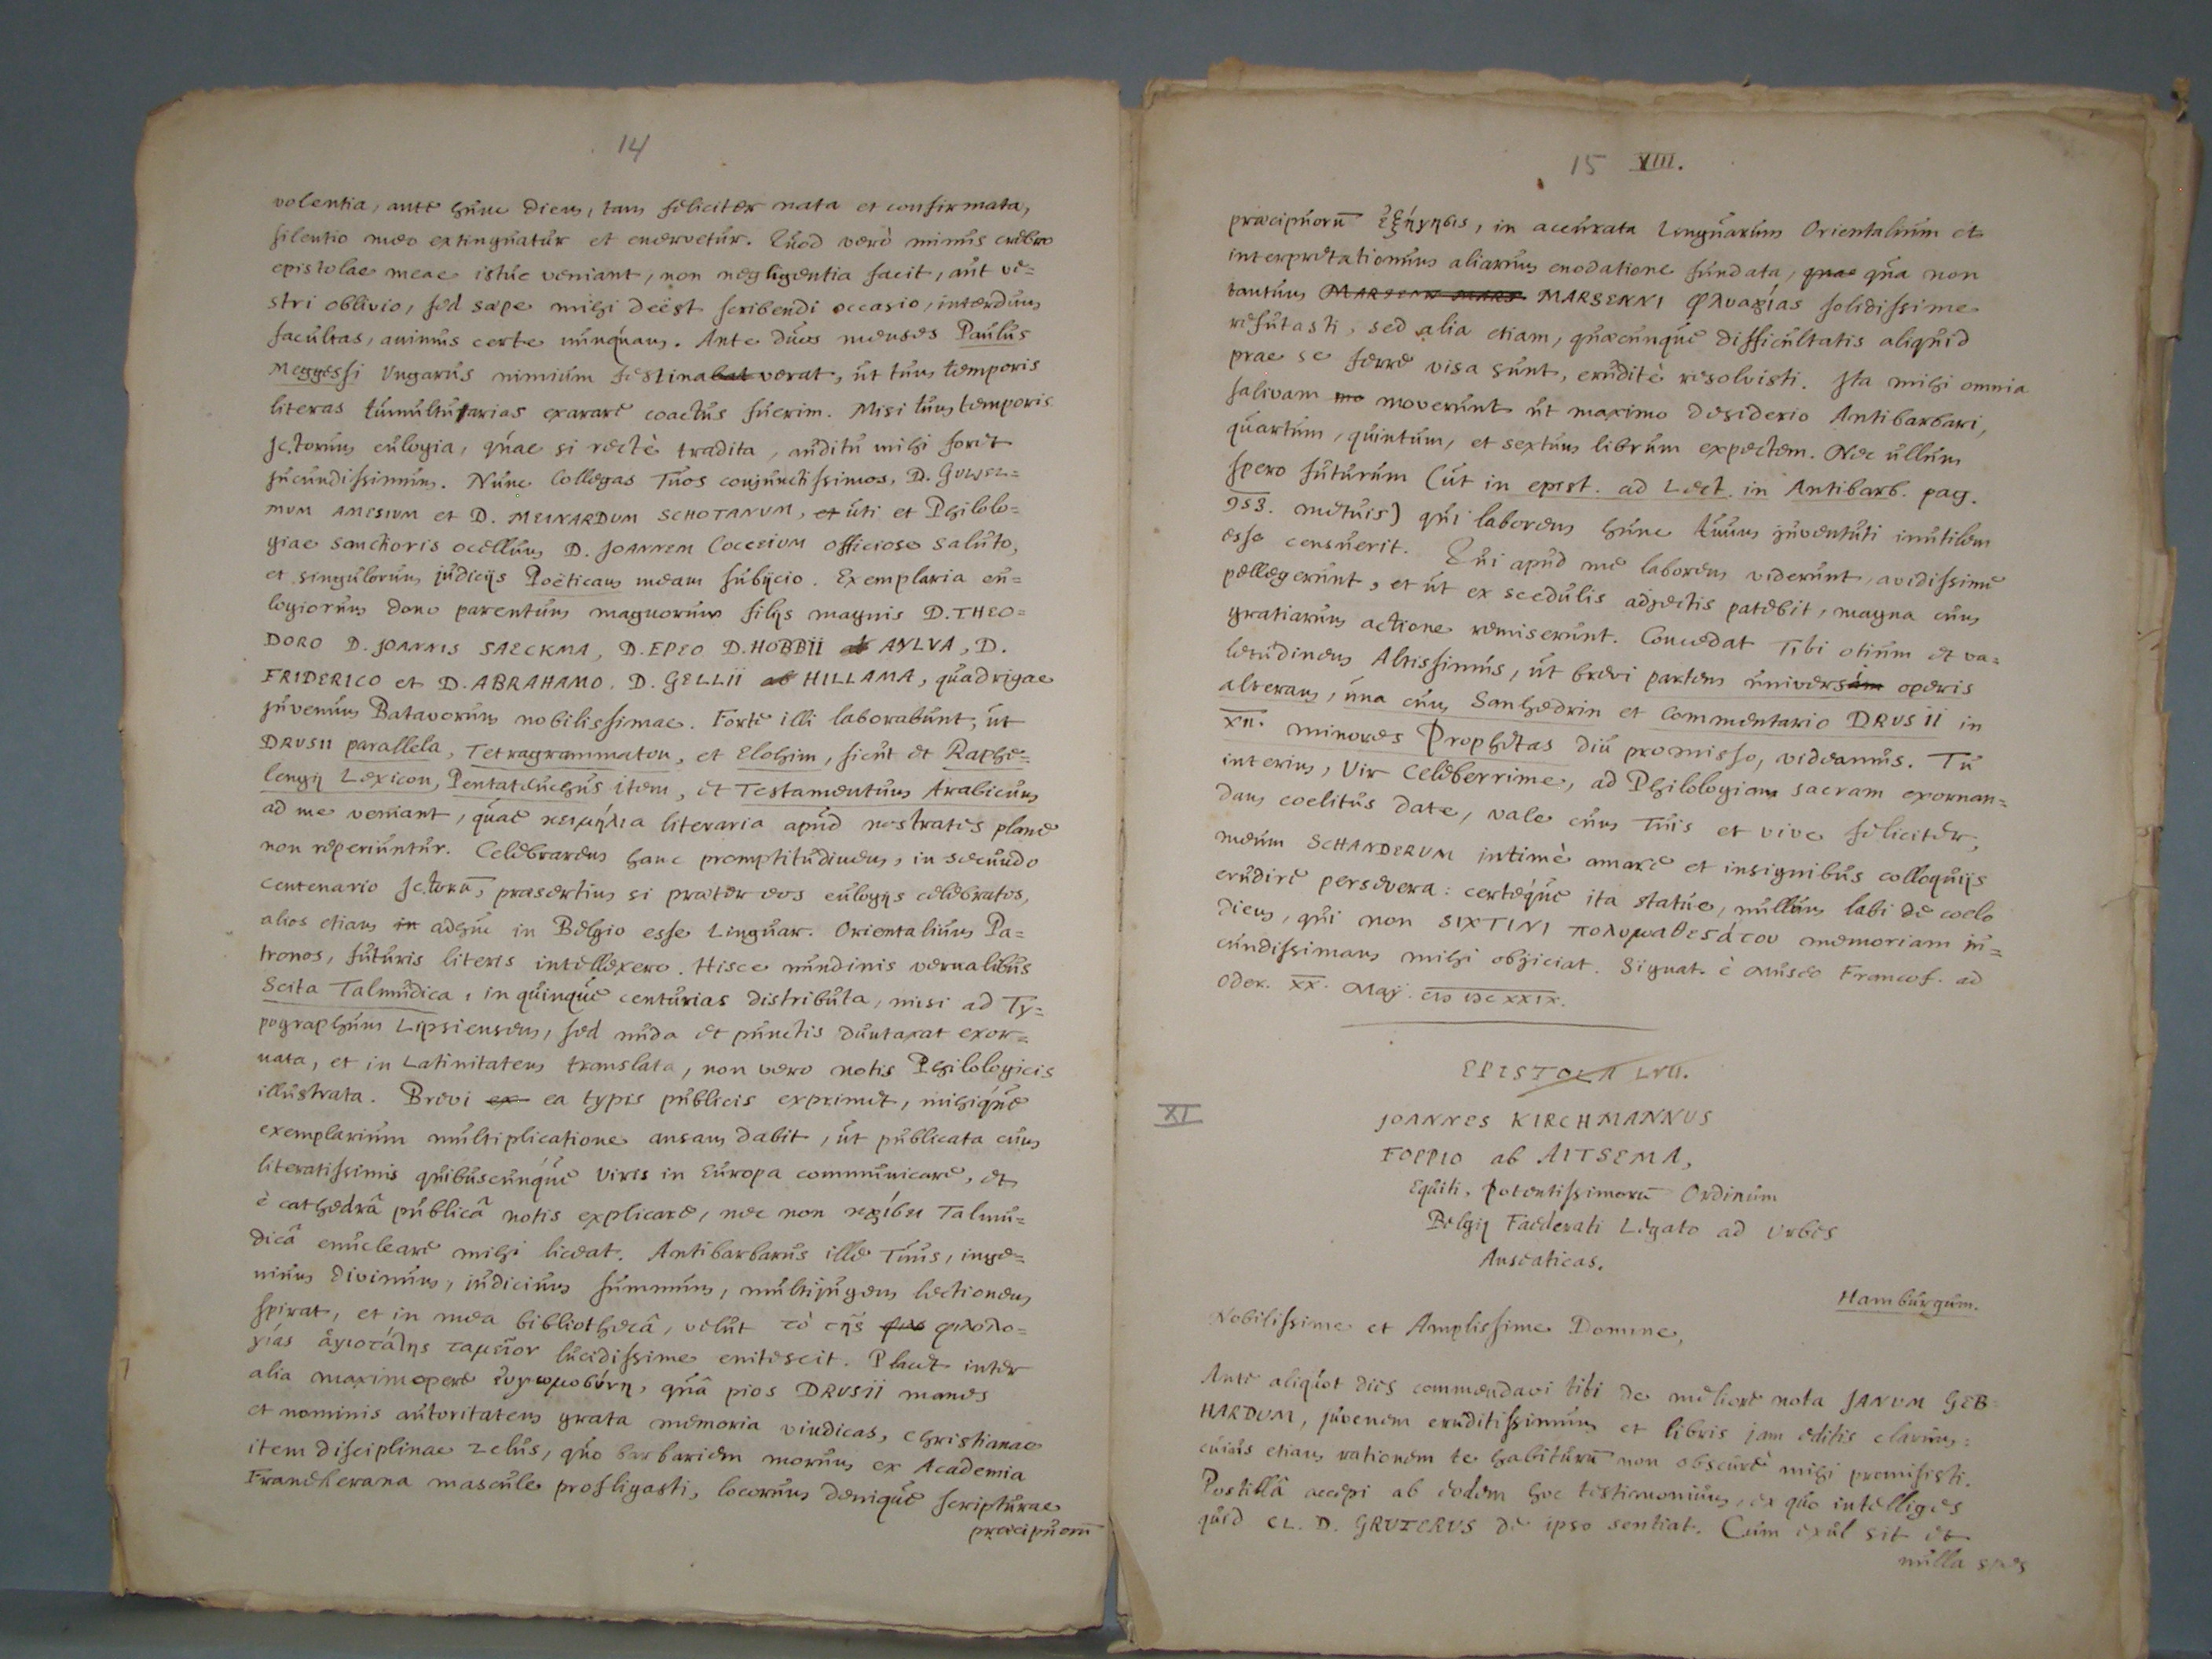 14
volentia, ante hunc diem, tam feliciter nata et confirmata,
silentio meo extinguatur et enervetur. Quod verò minus crebro
epistolae meae istuc veniant, non negligentia facit, aut ve=
stri oblivio, sed saepe mihi deëst scribendi occasio, interdum
facultas, animus certe nunquam. Ante duos menses Paulus
Meggessi Ungarus nimium festinabat verat, ut tum temporis
literas tumultuarias exarare coactus fuerim. Misi tum temporis
Jctorum eulogia, quae si rectè tradita, auditu mihi foret
jucundissimum. Nunc Collegas Tuos conjunctissimos, D. GUJEL=
MUM AMESIUM et D. MEINARDUM SCHOTANUM, et uti et Philolo=
giae sanctioris ocellum D. JOANNEM COCCEIUM officiose saluto,
et singulorum judicijs Poëticam meam subijcio. Exemplaria eu=
logiorum dono parentum magnorum filijs magnis D. THEO=
DORO D. JOANNIS SAECKMA, D. EPEO D. HOBBII ab AYLVA, D.
FRIDERICO et D. ABRAHAMO. D. GELLII ab HILLAMA, quadrigae
juvenum Batavorum nobilissimae. Forte illi laborabunt, ut
DRUSII parallela, Tetragrammaton, et Elohim, sicut et Raphe=
lengij Lexicon, Pentateuchus item, et Testamentum Arabicum
ad me veniant, quae κειμήλια literaria apud nostrates plane
non reperiuntur. Celebrarem hanc promptitudinem, in secundo
centenario Jctorū, praesertim si praeter eos eulogijs celebratos,
alios etiam in adhuc in Belgio esse Linguar. Orientalium Pa=
tronos, futuris literis intellexero. Hisce nundinis vernalibus
Scita Talmudica, in quinque centurias distributa, misi ad Ty=
pographum Lipsiensem, sed nuda et punctis duntaxat exor=
nata, et in Latinitatem translata, non vero notis Philologicis
illustrata. Brevi ex ea typis publicis exprimet, mihique
exemplarium multiplicatione ansam dabit, ut publicata cum
literatissimis quibuscunque viris in Europa communicare, et
è cathedrâ publicâ notis explicare, nec non Talmu=
dicâ enucleare mihi liceat. Antibarbarus ille Tuus, inge=
nium divinum, judicium summum, multijugem lectionem
spirat, et in mea bibliothecâ, velut τὸ τῆς φιλ φιλολο=
γίας ἁγιοτάτης ταμεῖον lucidissime enitescit. Placet inter
alia maximopere εὐγνωμοσύνη, quâ pios DRUSII manes
et nominis autoritatem grata memoria vindicas, Christianae
item disciplinae zelus, quo barbariem morum ex Academia
Franekerana mascule profligasti, locorum denique scripturae
praecipuorū
15 XIII.
praecipuorū ἐξήγησις, in accurata Linguarum Orientalium et
interpretationum aliarum enodatione fundata, quae qua non
tantum MARSENN MARS MARSENNI φλυαρίας solidissime
refutasti, sed alia etiam, quaecunque difficultatis aliquid
prae se ferre visa sunt, eruditè resolvisti. Ita mihi omnia
salivam mo moverunt ut maximo desiderio Antibarbari,
quartum, quintum, et sextum librum expectem. Nec ullum
spero futurum (ut in epist. ad Lect. in Antibarb. pag.
953. metuis) qui laborem hunc tuum juventuti inutilem
esse censuerit. Qui apud me laborem viderunt, avidissime
pellegerunt, et ut ex scedulis adjectis patebit, magna cum
gratiarum actione remiserunt. Concedat Tibi otium et va=
letudinem Altissimus, ut brevi partem universam operis
alteram, una cum Sanhedrin et Commentario DRUSII in
XII. minores Prophetas diu promisso, videamus. Tu
interim, Vir Celeberrime, ad Philologiam sacram exornan=
dam coelitus date, vale cum Tuis et vive feliciter,
meum SCHANDERUM intimè amare et insignibus colloquijs
erudire persevera: certòque ita statue, nullum labi de coelo
diem, qui non SIXTINI πολυμαθεστάτου memoriam ju=
cundissimam mihi objiciat. Signat. è Musèo Francof. ad
Oder. XX. Maij. CIƆ IƆC XXIX.
EPISTOLA LVII.
XI
JOANNES KIRCHMANNUS
FOPPIO ab AITSEMA,
Equiti, Potentissimorū Ordinum
Belgij Faederati Legato ad Urbes
Anseaticas.
Hamburgum.
Nobilissime et Amplissime Domine,
Ante aliquot dies commendavi tibi de meliore nota JANUM GEB=
HARDUM, juvenem eruditissimum et libris jam editis clarum:
cuius etiam rationem te habiturū non obscurè mihi promisisti.
Postillâ accepi ab eodem hoc testimonium, ex quo intelliges
quid CL. D. GRUTERUS de ipso sentiat. Cum exul sit et
nulla spes